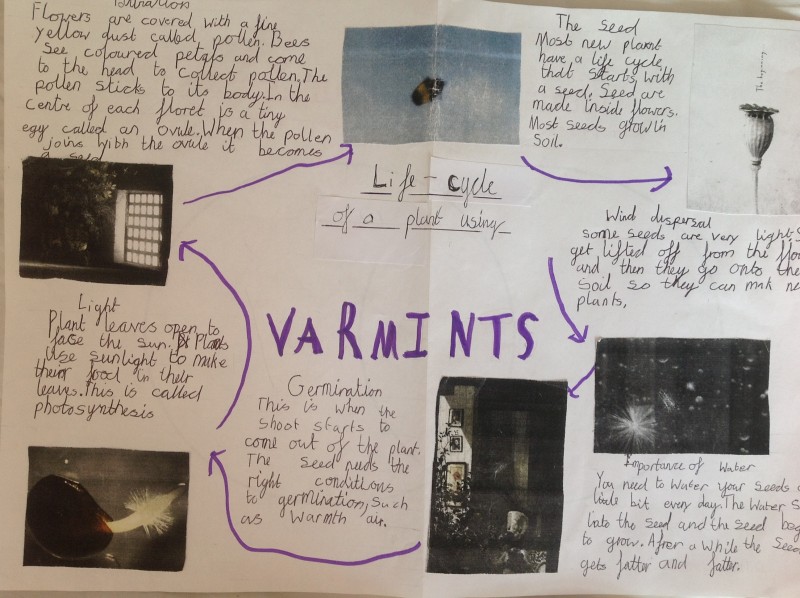 Flowers are covered with a fine
yellow dust called pollen. Bees
see coloured petals and come
to the head to collect pollen. The
pollen sticks to its body. In the
centre of each floret is a tiny
egg called an ovule. When the pollen
joins with the ovule it becomes
a seed
The Seed
Most new
have a life cycle
that starts with
a seed. Seed are
made inside flowers.
Most seeds grow in
soil.
The beginning
Life-cycle
of a plant using
Wind dispersal
some seeds are very light
get lifted off from the
and then they go onto the
soil so they can mak
plants,
VARMINTS
Light
Plant leaves open to
face the sun. Plants
Use sunlight to make
their food in their
leaves. This is called
photosynthesis
Germination
This is when the
shoot starts to
come out of the plant.
The seed needs the
right conditions
to germination, such
as warmth air.
Importance of Water
You need to water your seeds
little bit every day. The water
into the seed and the seed
to grow. After a while the seed
gets fatter and fatter.